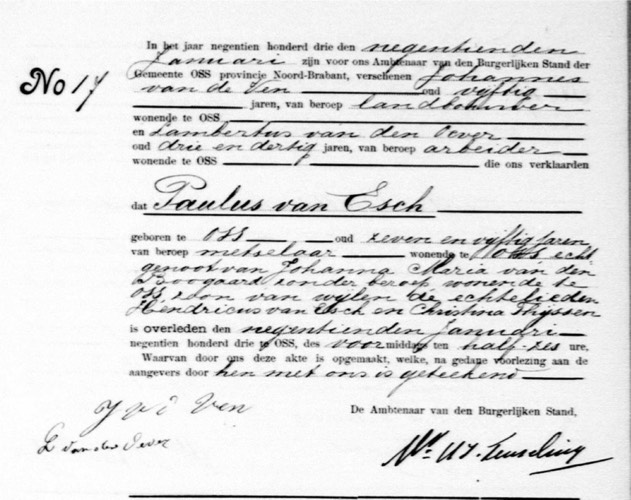 In het jaar negentien honderd drie den negentienden
Januari zijn voor ons Ambtenaar van den Burgerlijken Stand der
Gemeente OSS provincie Noord-Brabant, verschenen Johannes
No 17
van de Ven oud vijftig
jaren, van beroep landbouwer
wonende te OSS
en Lambertus van den Oever
oud drie en dertig jaren, van beroep arbeider
wonende te OSS die ons verklaarden
dat Paulus van Esch
geboren te OSS oud zeven en vijftig jaren
van beroep metselaar wonende te Oss echt
genoot van Johanna Maria van den
Boogaard zonder beroep wonende te
Oss, zoon van wijlen de echtelieden
Hendricus van Esch en Christina Thijssen
is overleden den negentienden Januari
negentien honderd drie te OSS, des voormiddags ten half-zes ure,
Waarvan door ons deze akte is opgemaakt, welke, na gedane voorlezing aan de
aangevers door hen met ons is geteekend
J v d Ven
De Ambtenaar van den Burgerlijken Stand,
L van den Oever